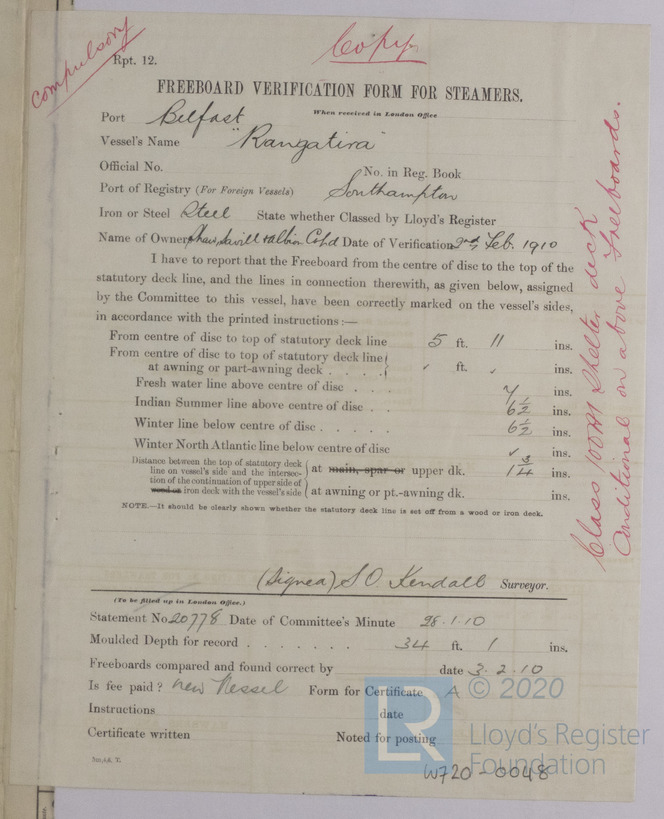 compulsory
Copy
Rpt. 12.
FREEBOARD VERIFICATION FORM FOR STEAMERS.
When received in London Office
Port Belfast
Vessel's Name "Rangatira"
Official No. No. in Reg. Book
Port of Registry (For Foreign Vessels) Southampton
Iron or Steel Steel State whether Classed by Lloyd's Register
Name of Owner Shaw, Savill & Albion Co Ld Date of Verification 2nd Feb. 1910
I have to report that the Freeboard from the centre of disc to the top of the
statutory deck line, and the lines in connection therewith, as given below, assigned
by the Committee to this vessel, have been correctly marked on the vessel's sides,
in accordance with the printed instructions :—
From centre of disc to top of statutory deck line 5 ft. 11 ins.
From centre of disc to top of statutory deck line
at awning or part-awning deck . . . . ✓ ft. ✓ ins.
Fresh water line above centre of disc . . . 7 ins.
Indian Summer line above centre of disc . . 6½ ins.
Winter line below centre of disc . . . . . 6½ ins.
Winter North Atlantic line below centre of disc ✓ ins.
Distance between the top of statutory deck
line on vessel's side and the intersec-
tion of the continuation of upper side of
wood or iron deck with the vessel's side
at main, spar or upper dk. 1¾ ins.
at awning or pt.-awning dk. ins.
NOTE.—It should be clearly shown whether the statutory deck line is set off from a wood or iron deck.
Class 100A1 Shelter deck
Conditional on above Freeboards.
(Signed) S O Kendall Surveyor.
(To be filled up in London Office.)
Statement No 20778 Date of Committee's Minute 28.1.10
Moulded Depth for record . . . . . . . 34 ft. 1 ins.
Freeboards compared and found correct by date 3.2.10
Is fee paid? New Vessel Form for Certificate A
Instructions date
Certificate written Noted for posting
LR
© 2020
Lloyd's Register
Foundation
W720-0048